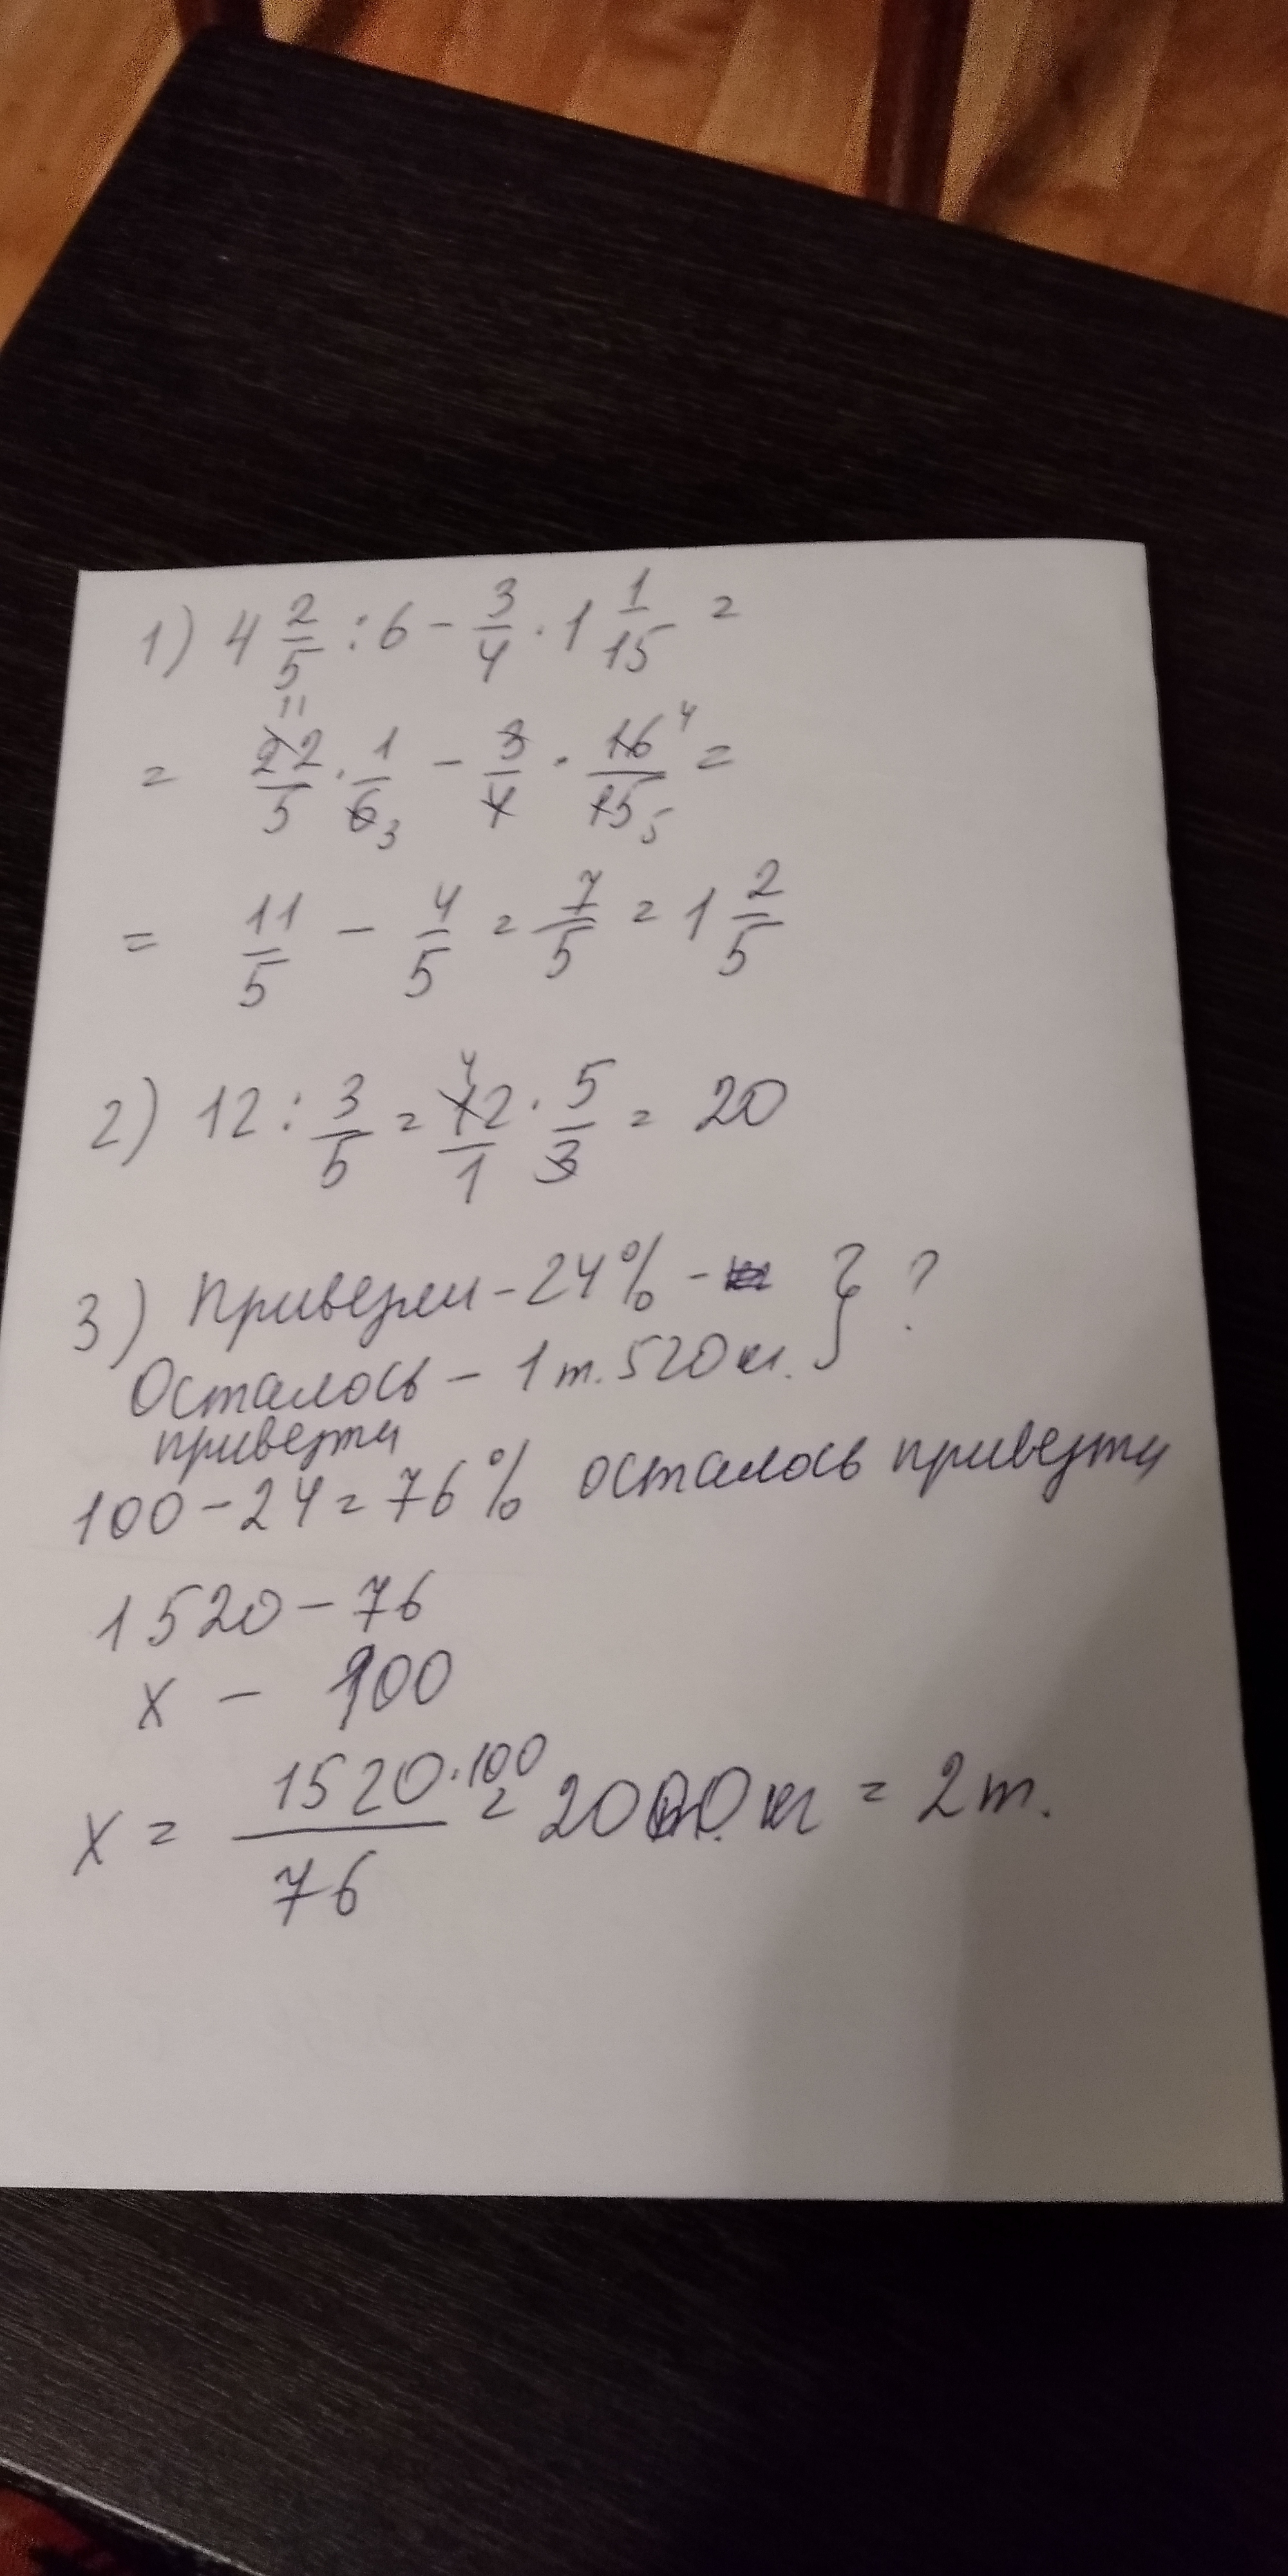 1) 4 2/5 : 6 - 3/4 · 1 1/15 =
= 22/5 11 · 1/6 3 - 3/4 · 16/15 4 5 =
= 11/5 - 4/5 = 7/5 = 1 2/5
2) 12 : 3/5 = 12/1 4 · 5/3 = 20
3) Привезли - 24% - } ?
Осталось - 1 т. 520 кг.
привезти
100 - 24 = 76% осталось привезти
1520 - 76
x - 100
x = 1520·100/76 = 2000 кг = 2 т.